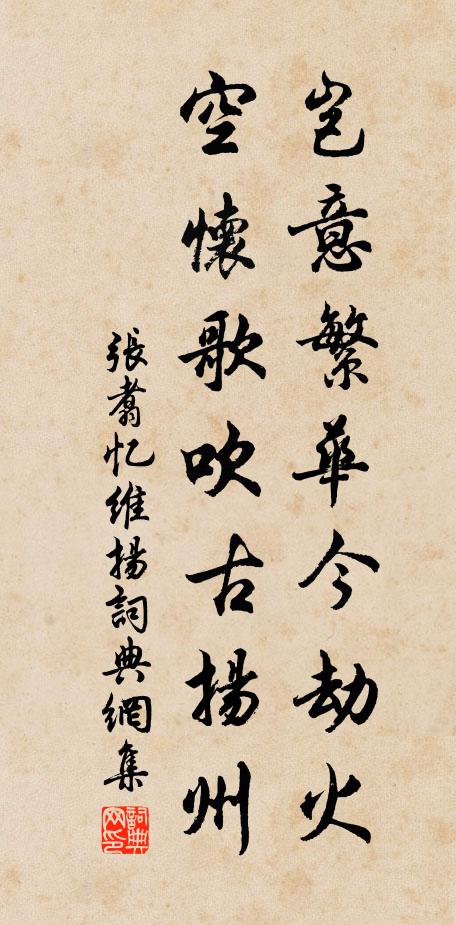 岂意繁華今劫火
空懷歌吹古揚州
張翥忆維揚詞典網集
詞典网印